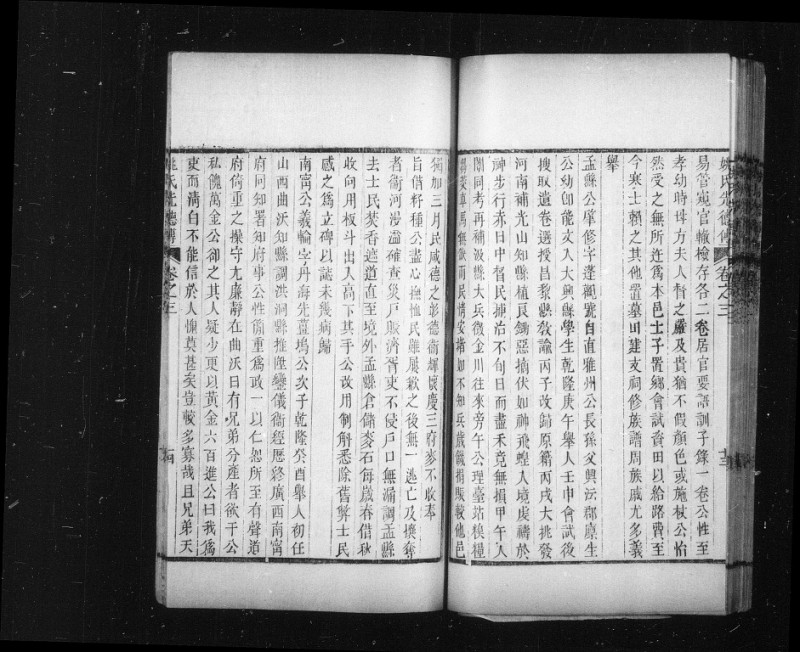 易管窺官轍檢存各二卷居官要語訓子錄一卷公性至
孝幼時母方夫人督之嚴及貴猶不假顏色或施杖公怡
然受之無所迕爲本邑士子置鄉會試資田以給路費至
今寒士賴之其他置墓田建支祠修族譜周族戚尤多義
舉
孟縣公肇修字蓬觀號自直雅州公長孫父興沄郡原生
公幼卽能文入大興縣學生乾隆庚午舉人壬申會試後
搜取遺卷選授昌黎縣敎諭丙子改歸原籍丙戌大挑發
河南補光山知縣植良鋤惡摘伏如神飛蝗入境虔禱於
神步行赤日中督民捕治不旬日而盡禾竟無損甲午入
闈同考再補汲縣大兵徵金川往來旁午公理臺站糗糧
獨加三月民咸德之彰德衞輝懷慶三府麥不收奉
旨借籽種公盡心撫恤民雖屢歉之後無一逃亡及換奪
者衞河漫溢確查災戶賑濟胥吏不侵戶口無漏調孟縣
去士民焚香遮道直至境外孟縣倉儲麥石每歲春借秋
收向用板斗出入高下其手公改用制斛悉除舊弊士民
感之爲立碑以誌未幾病歸
南甯公義輪字丹海先薑塢公次子乾隆癸酉舉人初任
山西曲沃知縣調洪洞縣推陞鑾儀衞經歷終廣西南甯
府同知署知府事公性循重爲政一以仁恕所至有聲道
府倚重之操守尤廉靜在曲沃日有兄弟分產者欲干公
私餽萬金公卻之其人疑少更以黃金六百進公曰我爲
吏而淸白不能信於人愧莫甚矣豈較多寡哉且兄弟天
卷之三
卷之三